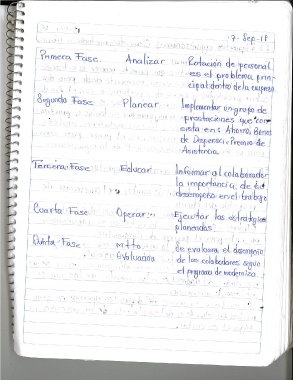 7-Sep-18
Primera Fase. Analizar Rotación de personal
es el problema prin-
cipal dentro de la empresa
Segunda Fase Planear Implementar un grupo de
prestaciones que con
sista en: Ahorro, Bonos
de Despensa, Premio de
Asistencia.
Tercera Fase Educar Informar al colaborador
la importancia de su
desempeño en el trabajo
Cuarta Fase Operar Ejecutar las estrategias
planeadas.
Quinta Fase Mtto Se evaluara el desempeño
Evaluación de los colaboradores según
el programa de